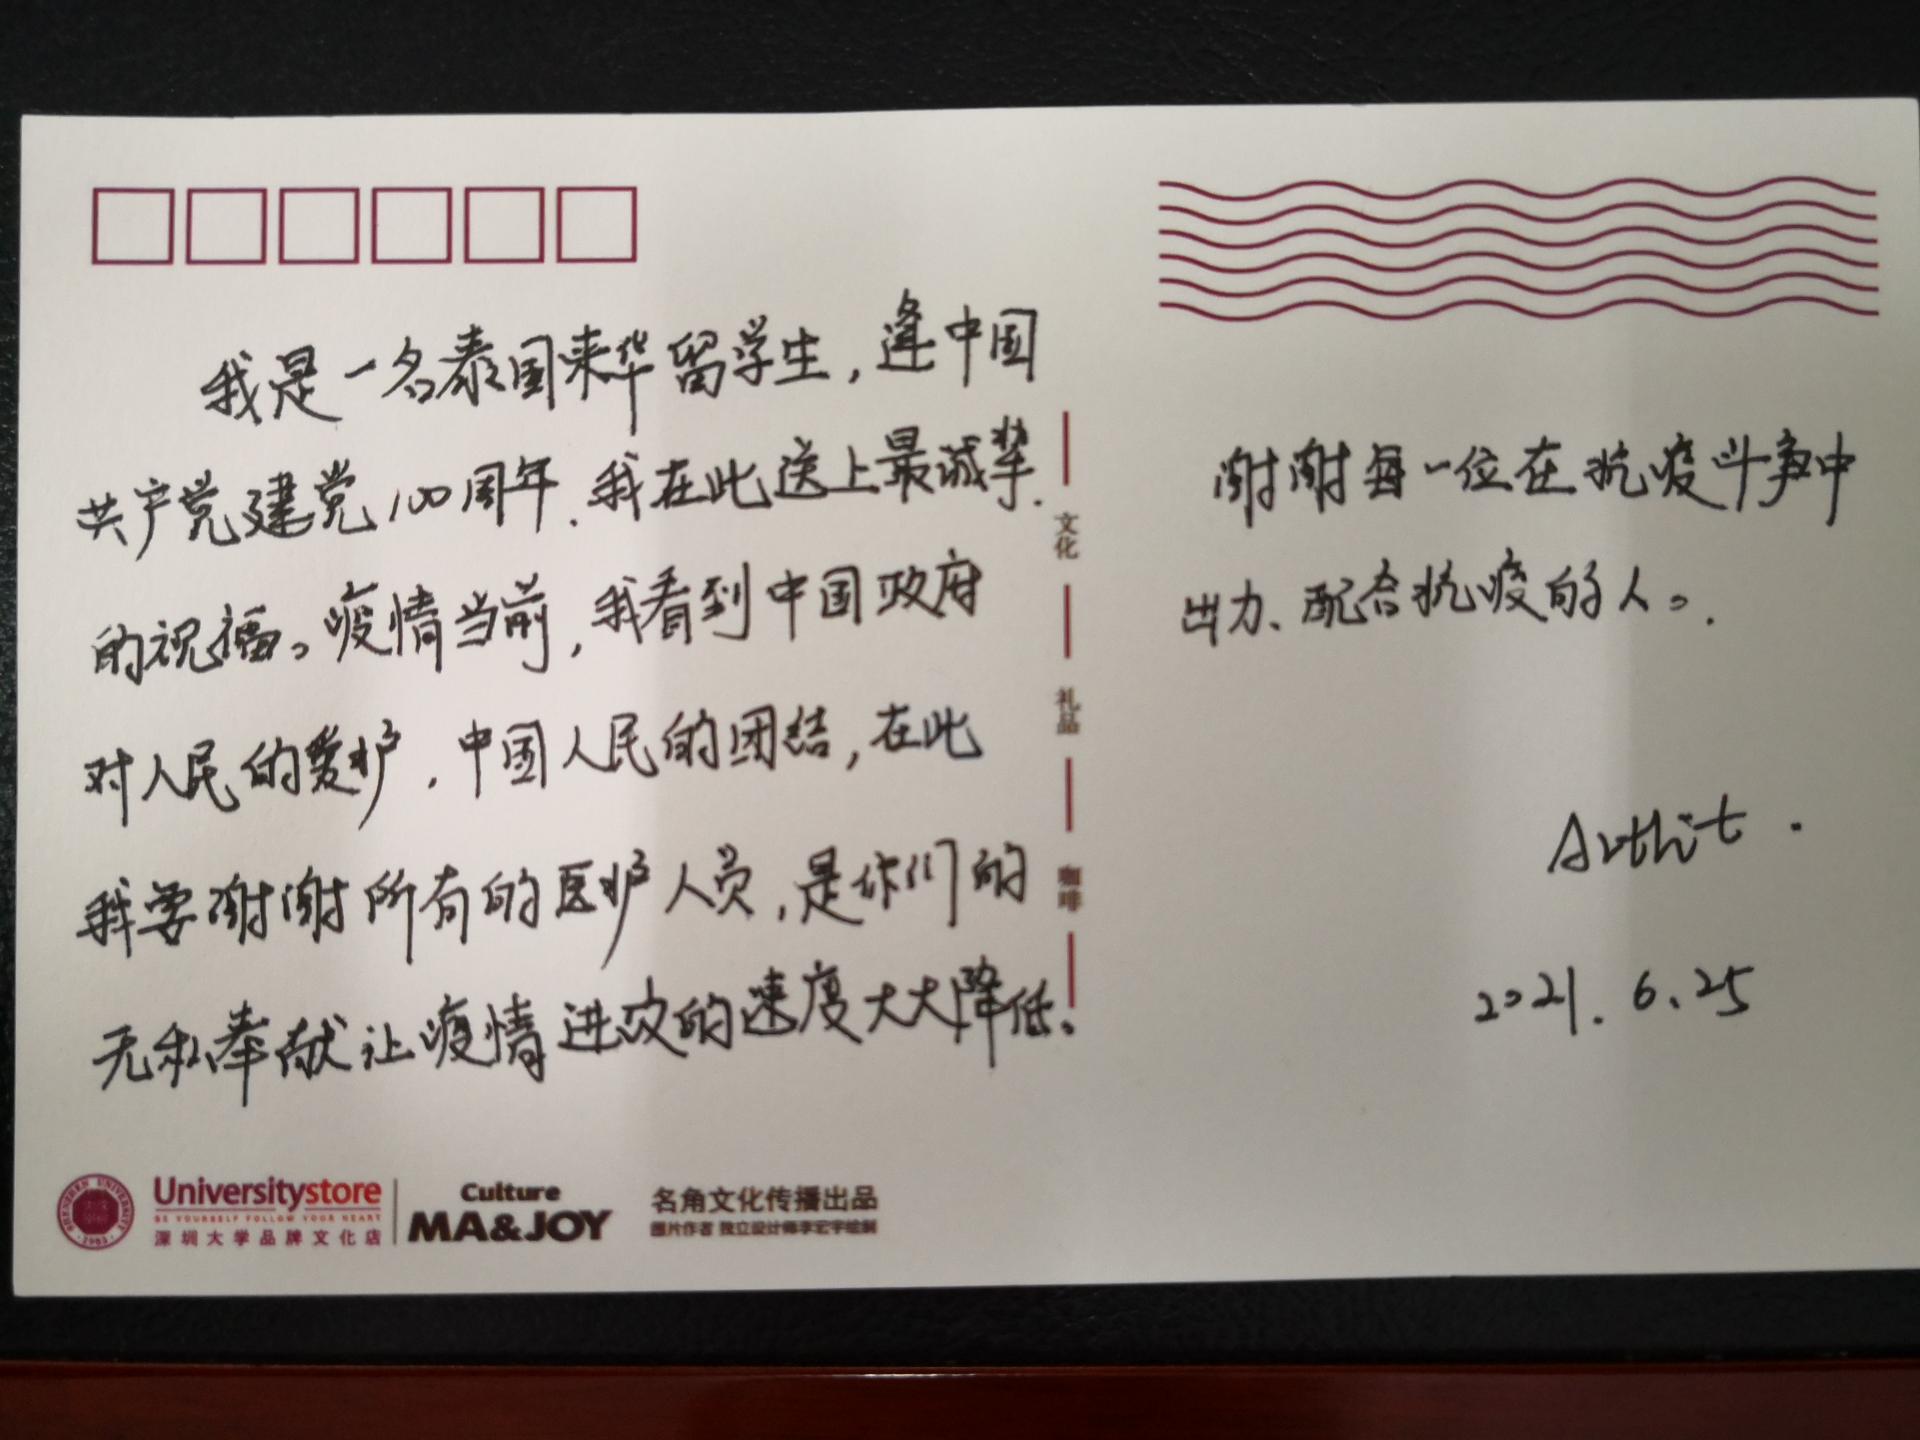 我是一名泰国来华留学生，逢中国
共产党建党100周年，我在此送上最诚挚
的祝福。疫情当前，我看到中国政府
对人民的爱护，中国人民的团结，在此
我要谢谢所有的医护人员，是你们的
无私奉献让疫情进攻的速度大大降低。
谢谢每一位在抗疫斗争中
出力、配合抗疫的人。
Arthit.
2021.6.25
文化
礼品
咖啡
SHENZHEN UNIVERSITY
1983
Universitystore
BE YOURSELF FOLLOW YOUR HEART
深圳大学品牌文化店
Culture
MA&JOY
名角文化传播出品
图片作者 独立设计师李宏宇绘制